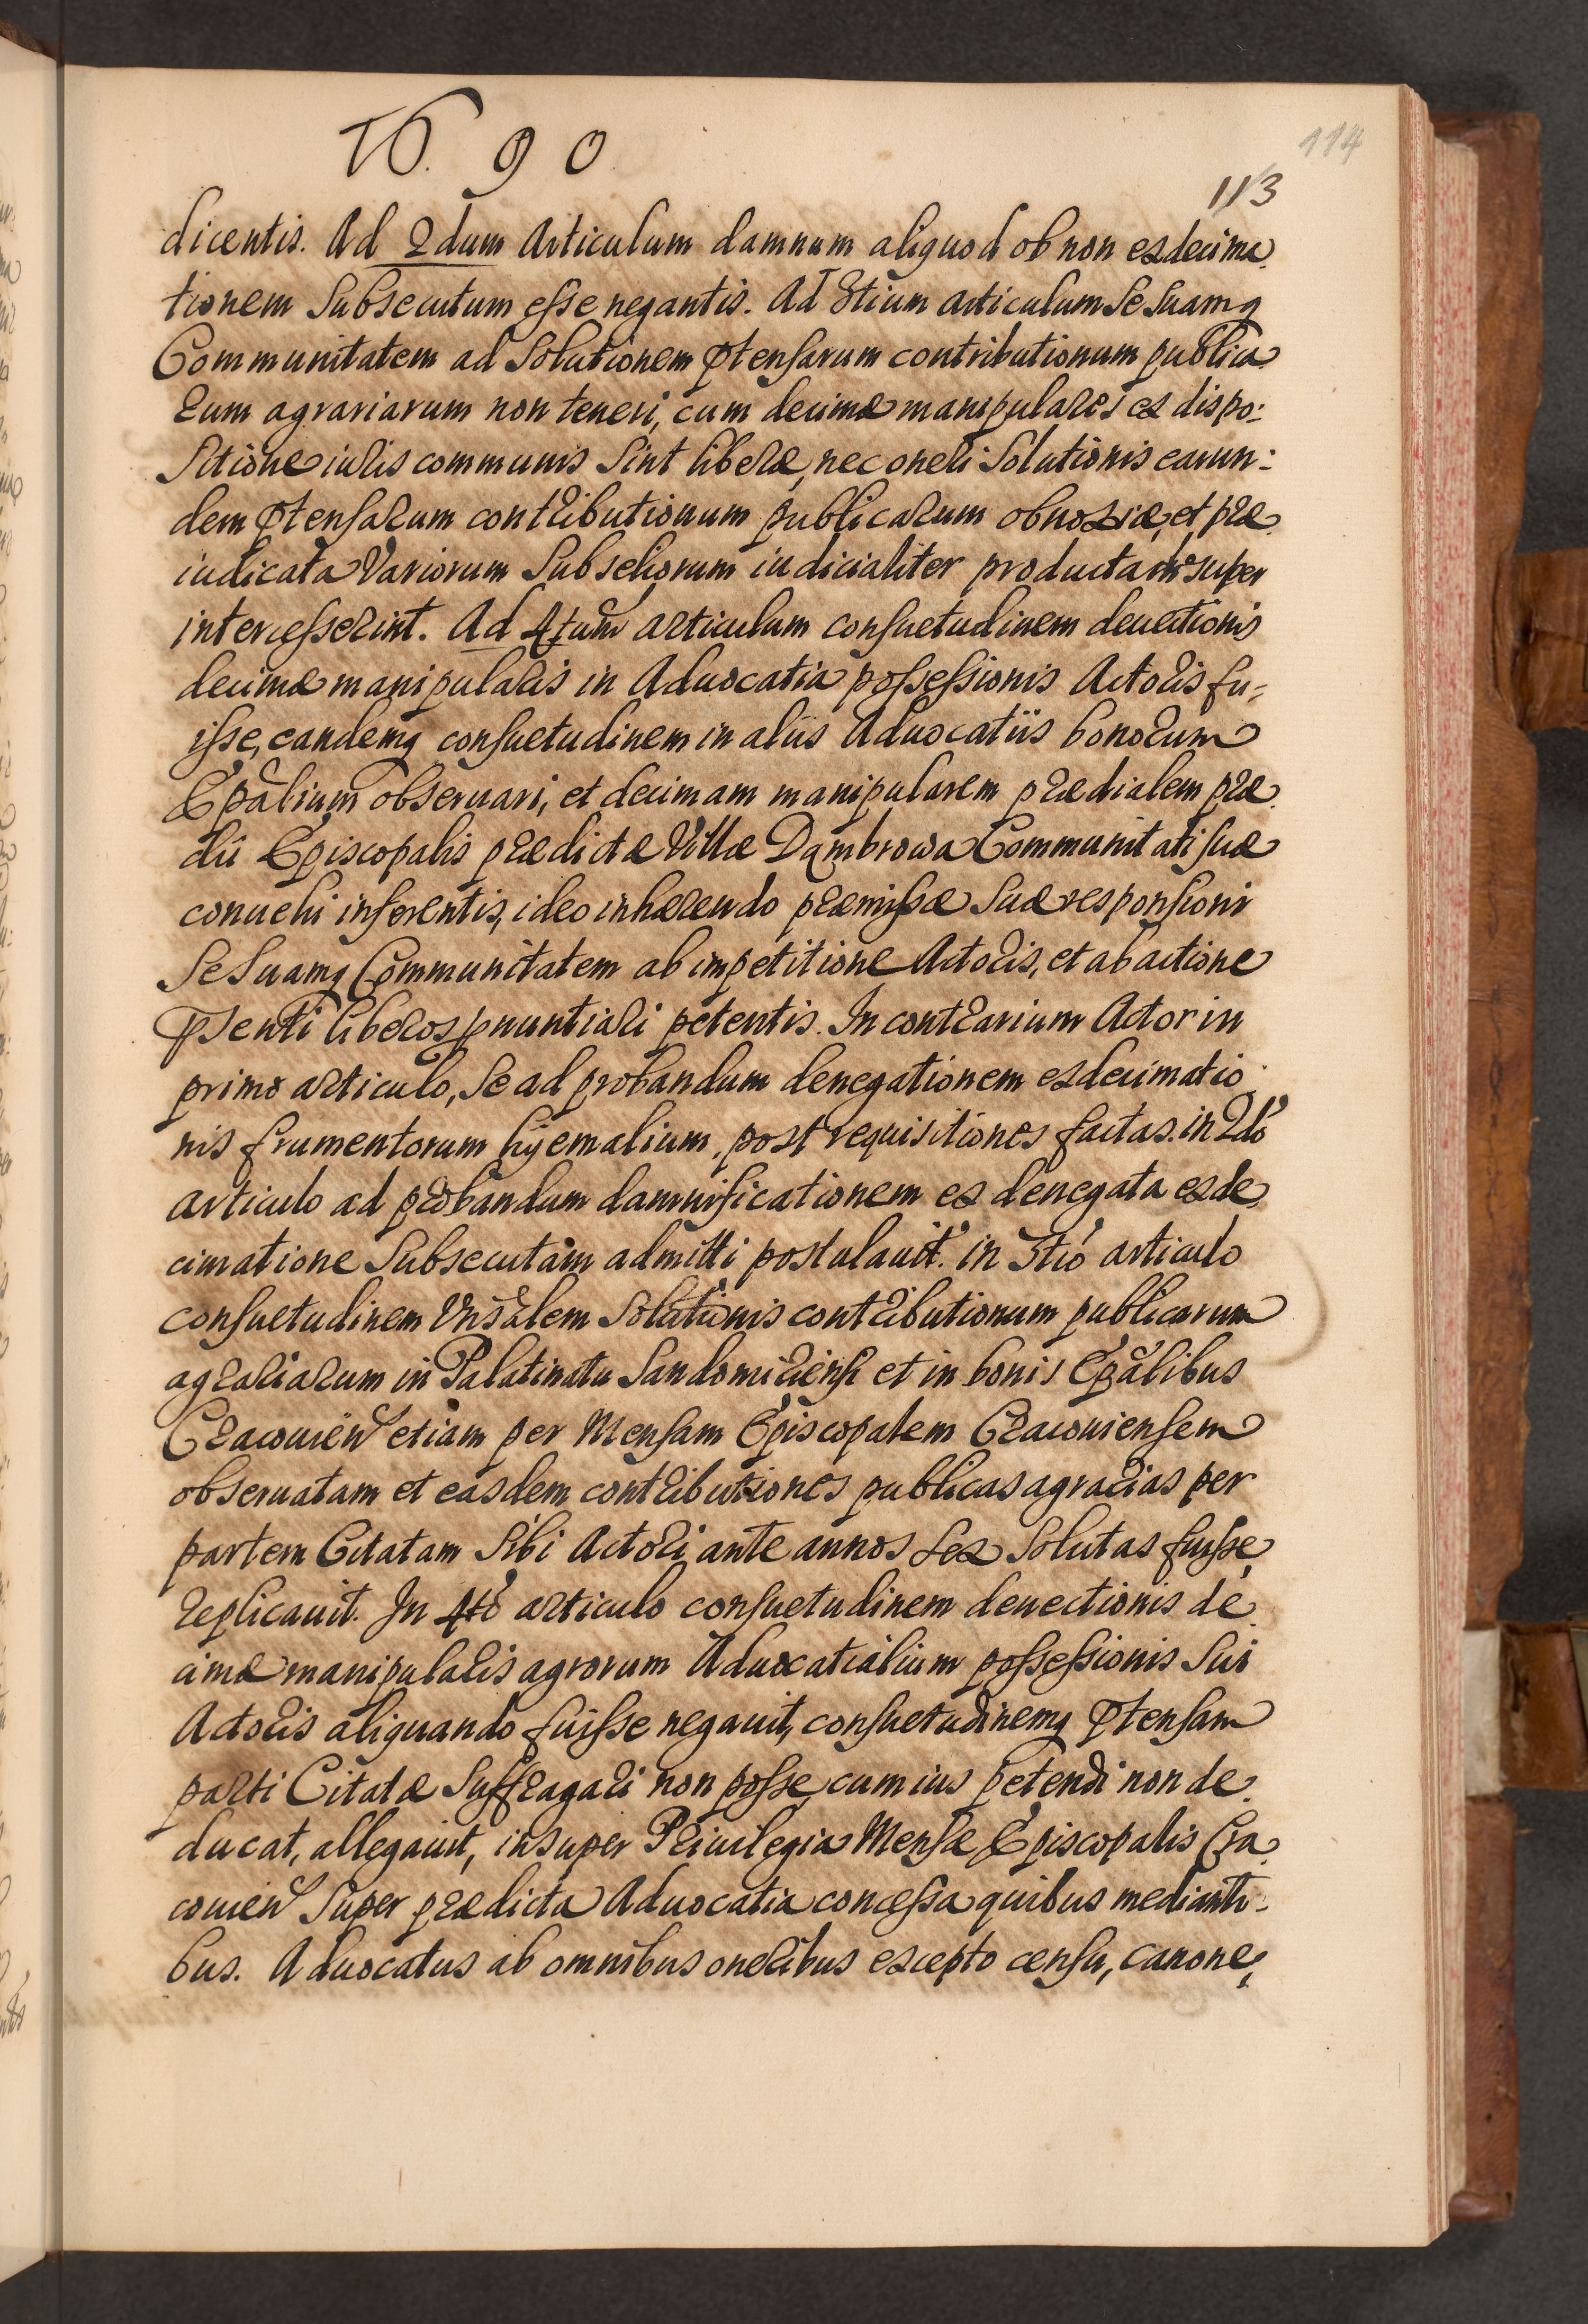 1690
114
113
dicentis. Ad 2dum Articulum damnum aliquod ob non exdecima
tionem subsecutum esse negantis. Ad 3tium articulum se suamq
Communitatem ad solutionem ptensarum contributionum publica
rum agrariarum non teneri, cum decimæ manipulares ex dispo:
sitione iuris communis sint liberæ, nec oneri solutionis earun:
dem ptensarum contributionum publicarum obnoxiæ, et præ
iudicata Variorum Subseliorum iudicialiter producta insuper
intercesserint. Ad 4tum articulum consuetudinem deuectionis
decimæ manipularis in Aduocatia possessionis Actoris fu=
isse, eandemq consuetudinem in aliis Aduocatiis bonorum
Epalium obseruari, et decimam manipularem prædialem præ
dii Episcopalis prædictæ Villæ Dąmbrowa Communitati suæ
conuehi inferentis, ideo inhærendo præmissæ suæ responsioni
se suamq Communitatem ab impetitione Actoris, et ab actione
psenti liberos pnuntiari petentis. In contrarium Actor in
primo articulo, se ad probandum denegationem exdecimatio
nis frumentorum hyemalium, post requisitiones factas. in 2do
articulo ad probandum damnificationem ex denegata exde
cimatione subsecutam admitti postulauit. in 3tio articulo
consuetudinem Vnsalem solutionis contributionum publicarum
agrariarum in Palatinatu Sandomiriensi et in bonis Epalibus
Cracouien etiam per Mensam Episcopalem Cracouiensem
obseruatam et easdem contributiones publicas agrarias per
partem Citatam sibi Actori ante annos sex solutas fuisse,
replicauit. In 4to articulo consuetudinem deuectionis de
cimæ manipularis agrorum Aduocatialium possessionis sui
Actoris aliquando fuisse negauit, consuetudinemq ptensam
parti Citatæ suffragari non posse, cum ius petendi non de
ducat, allegauit, insuper Priuilegia Mensæ Episcopalis Cra
couien super prædicta Aduocatia concessa quibus medianti:
bus. Aduocatus ab omnibus oneribus excepto censu, canone,